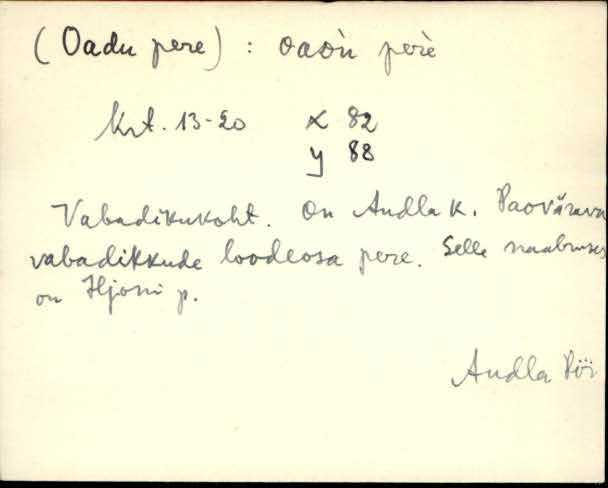 (Oadu pere) : oaòǹ perè
Krt. 13-20 x 82
y 88
Vabadikukoht. On Andla k. Paovärava
vabadikkude loodeosa pere. Selle naabruses
on p.
Andla Pöi